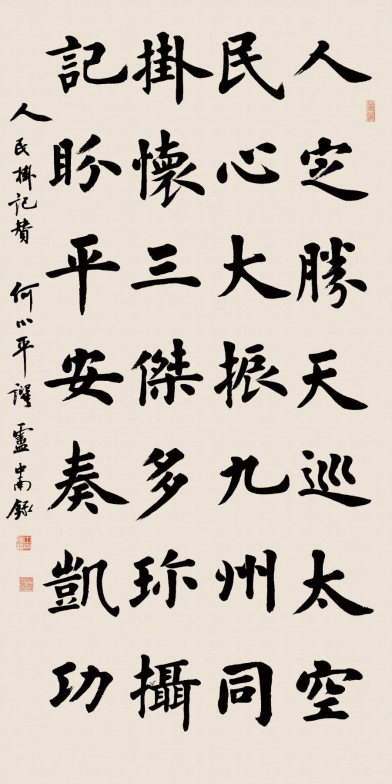 人定勝天巡太空
民心大振九州同
掛懷三傑多珎攝
記盼平安奏凱功
人民掛記贊 何小平譔 盧中南錄